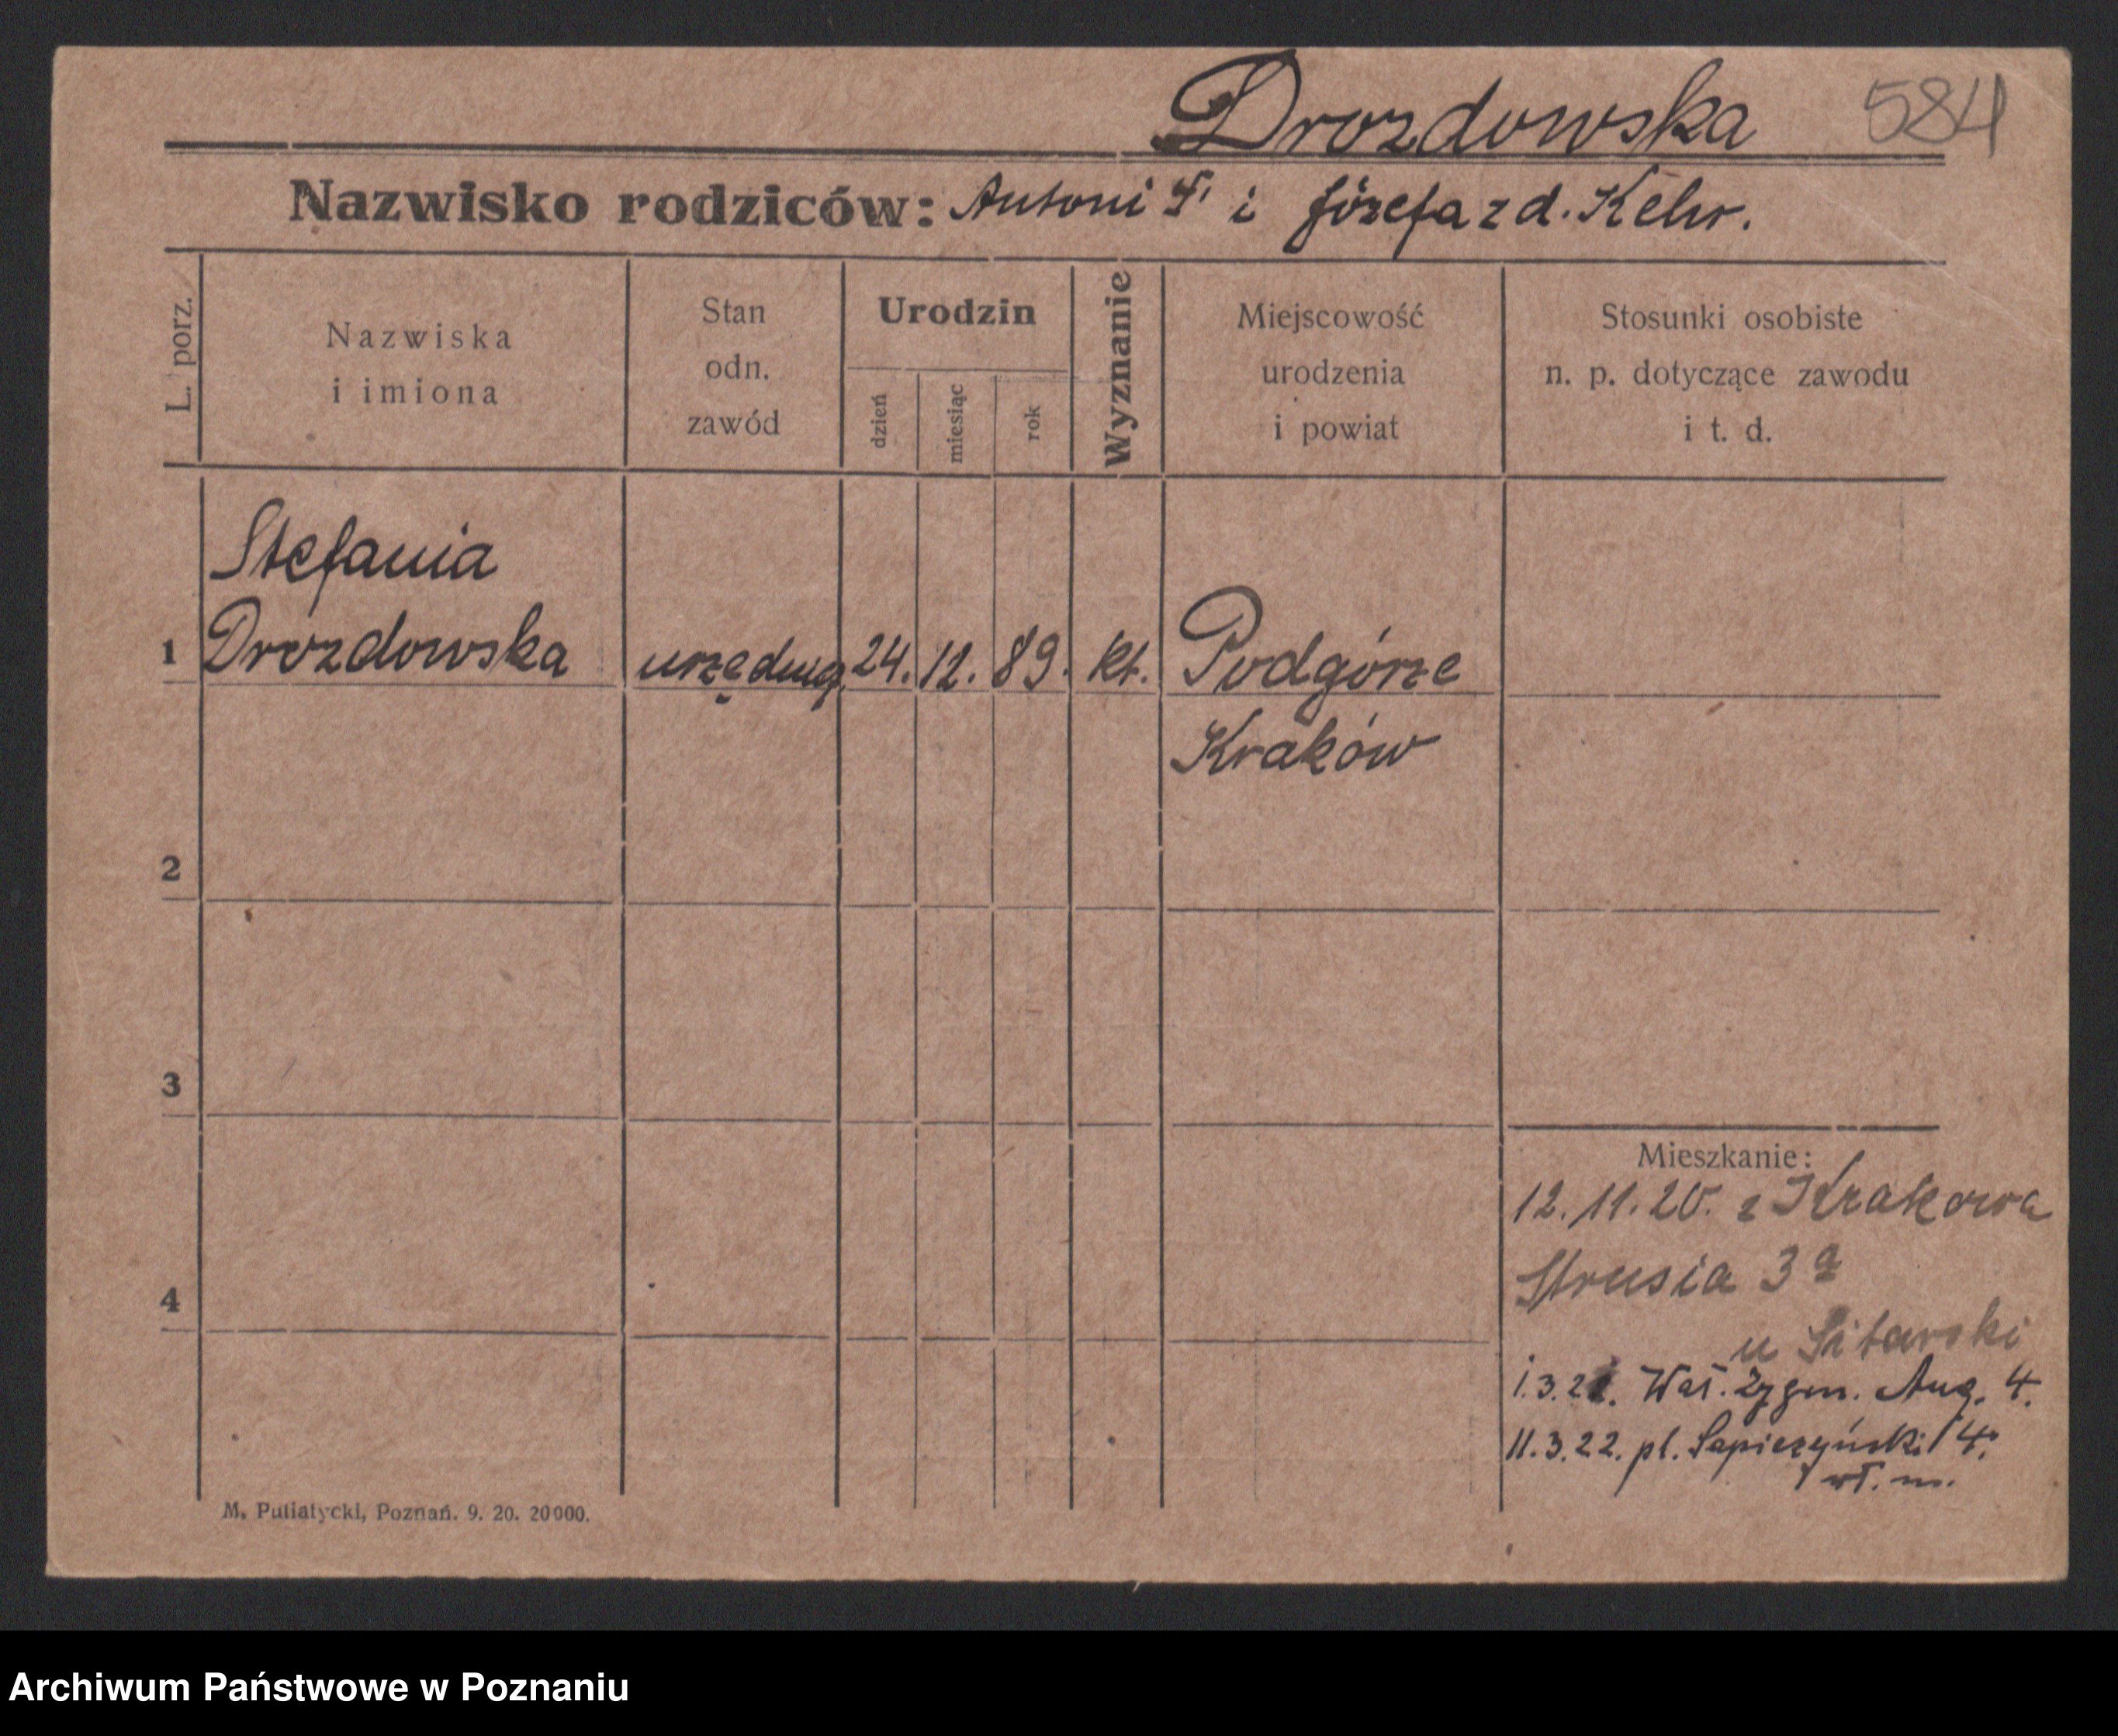 Drozdowska 584
Nazwisko rodziców: Antoni i Józefa z d. Kehr.
L. porz.
Nazwiska
i imiona
Stan
odn.
zawód
Urodzin
dzień
miesiąc
rok
Wyznanie
Miejscowość
urodzenia
i powiat
Stosunki osobiste
n. p. dotyczące zawodu
i t. d.
Stefania
1 Drozdowska urzędnicz. 24. 12. 89. kt. Podgórze
Kraków
2
3
4
Mieszkanie:
12.11.20. z Krakowa
Strusia 3a
u Sitarski
1.3.21. Wał. Zygm. Aug. 4.
11.3.22. pl. Sapieżyński 4.
wł. m.
M. Putiatycki, Poznań. 9. 20. 20000.
Archiwum Państwowe w Poznaniu